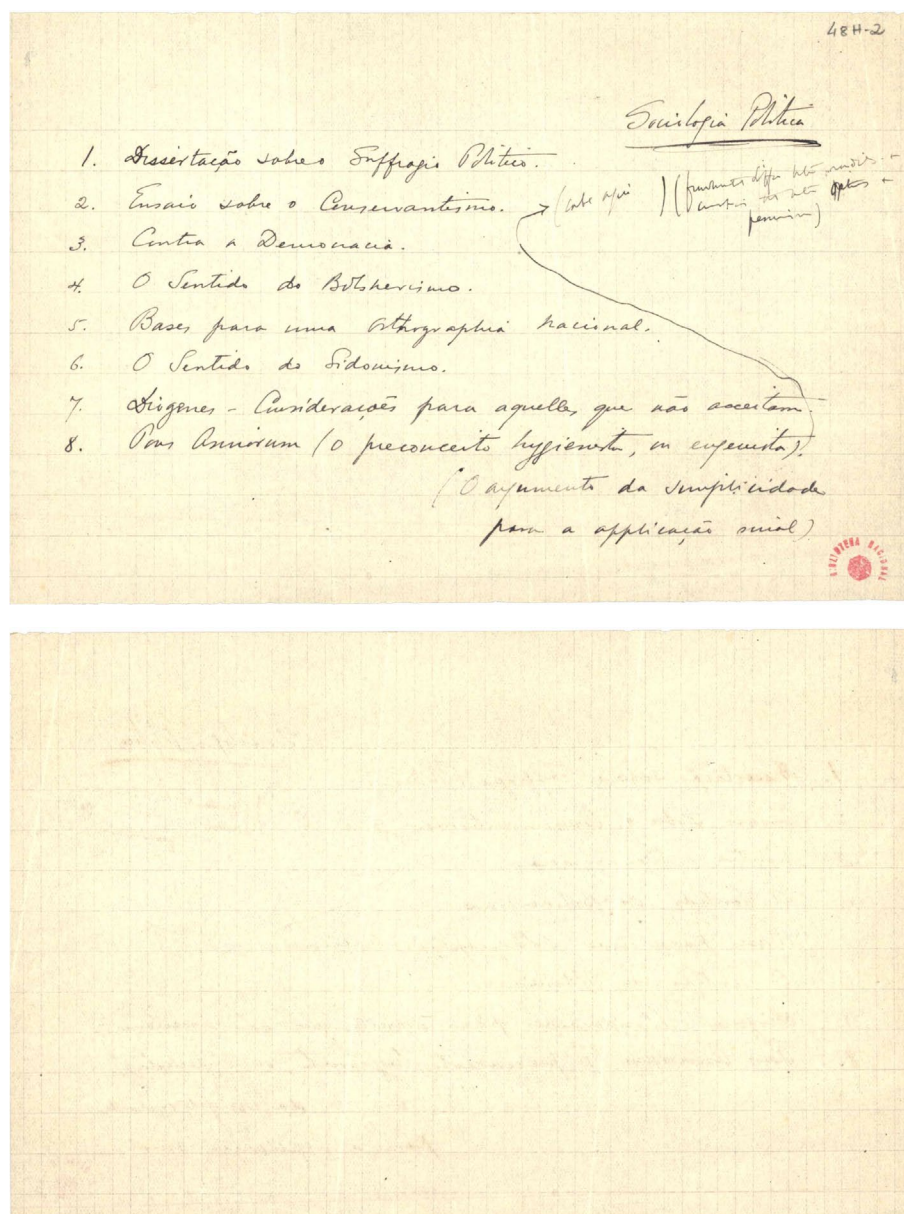 48H-2
Sociologia Politica
1. Dissertação sobre o Suffragio Politico.
2. Ensaio sobre o Conservantismo. (cabe aqui )
3. Contra a Democracia.
4. O Sentido do Bolshevismo.
5. Bases para uma Orthographia Nacional.
6. O Sentido do Sidonismo.
7. Diogenes - Considerações para aquelles que não acceitam.
8. Pons Asinorum (o preconceito hygienista, ou eugenista).
(O argumento da simplicidade
para a applicação social)
BIBLIOTECA NACIONAL